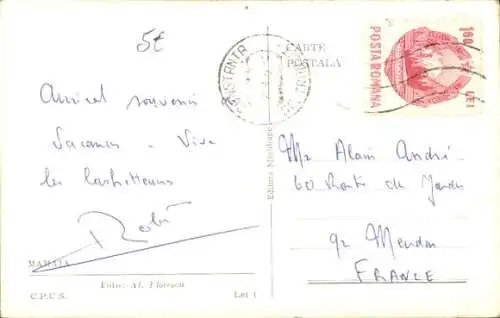 5€
CONSTANTA
CARTE
POSTALĂ
POSTA ROMANA
1,60
LEI
Amical souvenir
Vacances - Vive
les
Robi
MAMAIA
Foto: Al. Florescu
C.P.C.S.
Lei 1
Editura Meridiane
Mr Alain André
60 Route de
92 Meudon
FRANCE